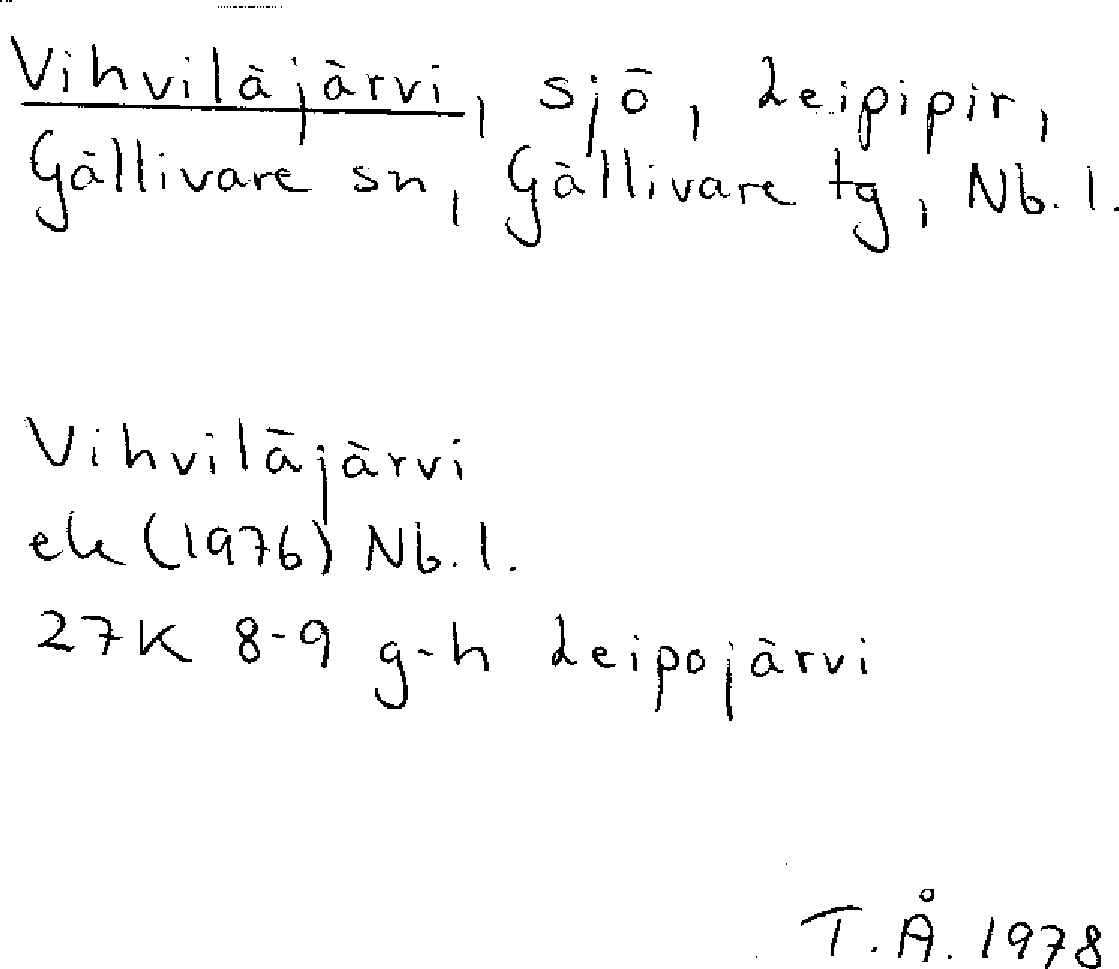 Vihviläjärvi, sjö, Leipipir,
Gällivare sn, Gällivare tg, Nb. l.
Vihviläjärvi
ek (1976) Nb. l.
27K 8-9 g-h Leipojärvi
T. Å. 1978